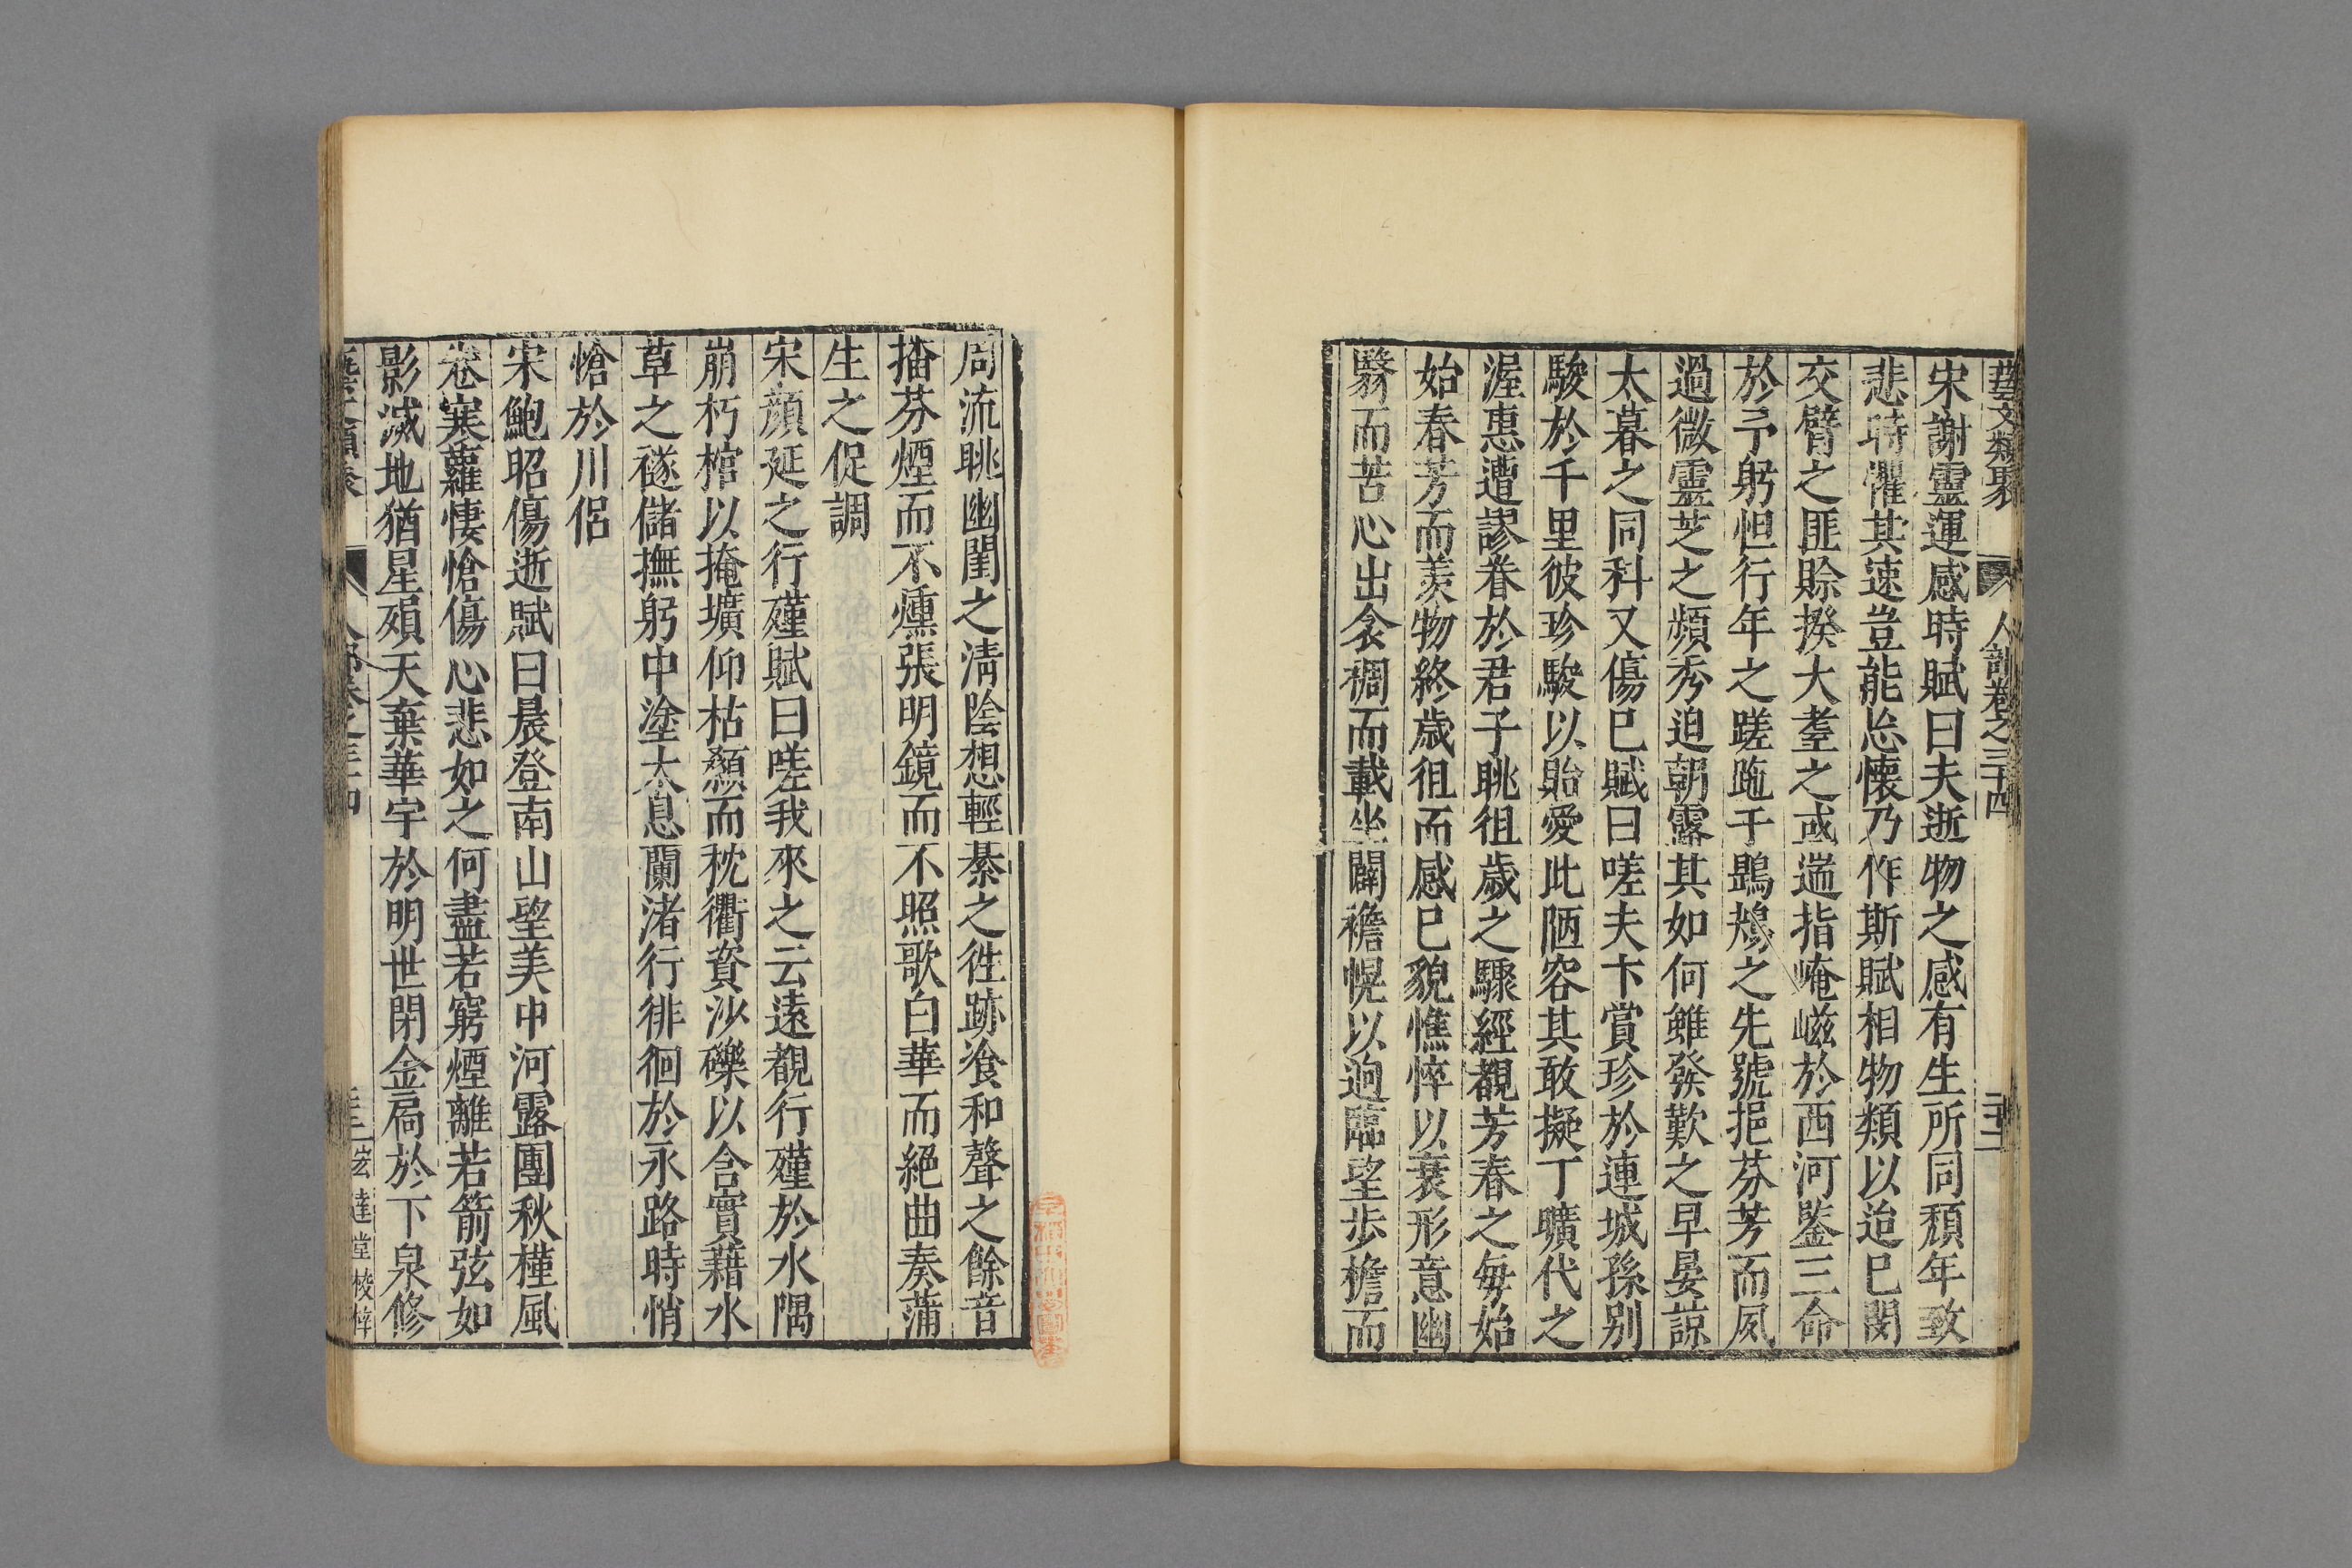 藝文類聚 人部卷之三十四 二十二
宋謝靈運感時賦曰夫逝物之感有生所同頹年致
悲時懼其速豈能忘懷乃作斯賦相物類以迨已閔
交臂之匪賒揆大耋之或遄指崦嵫於西河鑒三命
於予躬怛行年之蹉跎于鶗鴂之先號挹芬芳而夙
過微靈芝之頻秀迫朝露其如何雖發歎之早晏諒
太暮之同科又傷巳賦曰嗟夫卞賞珍於連城孫別
駿於千里彼珍駿以貽愛此陋容其敢擬丁曠代之
渥惠遭謬眷於君子眺徂歲之驟經覩芳春之每始
始春芳而羨物終歲徂而感巳貌憔悴以衰形意幽
翳而苦心出衾裯而載坐闢襜幌以迥臨望步櫩而
周流眺幽閨之淸陰想輕綦之徃跡湌和聲之餘音
播芬煙而不燻張明鏡而不照歌白華而絕曲奏蒲
生之促調
宋顏延之行殣賦曰嗟我來之云遠覩行殣於水隅
崩朽棺以掩壙仰枯顙而枕衢資沙礫以含實藉水
草之襚儲撫躬中塗太息蘭渚行徘徊於永路時悄
愴於川侶
宋鮑昭傷逝賦曰晨登南山望美中河露團秋槿風
卷寒蘿悽愴傷心悲如之何盡若窮煙離若箭弦如
影滅地猶星殞天棄華宇於明世閉金扃於下泉修
堂校梓